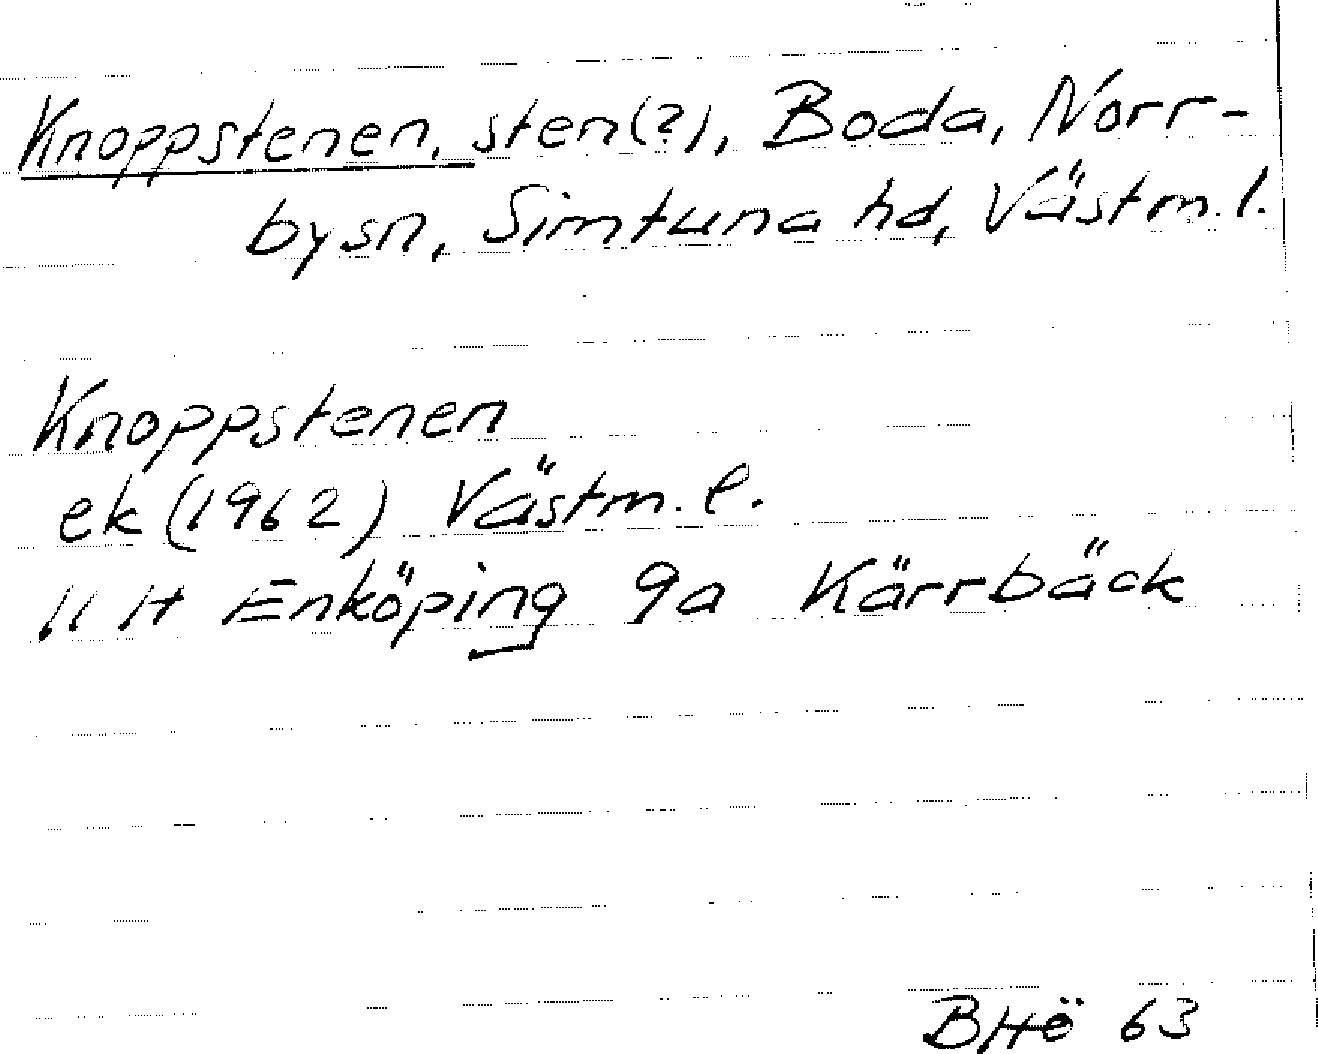 Knoppstenen, sten(?), Boda, Norr-
bysn, Simtuna hd, Västm. l.
Knoppstenen
ek (1962) Västm. l.
11 H Enköping 9a Kärrbäck
BHö 63